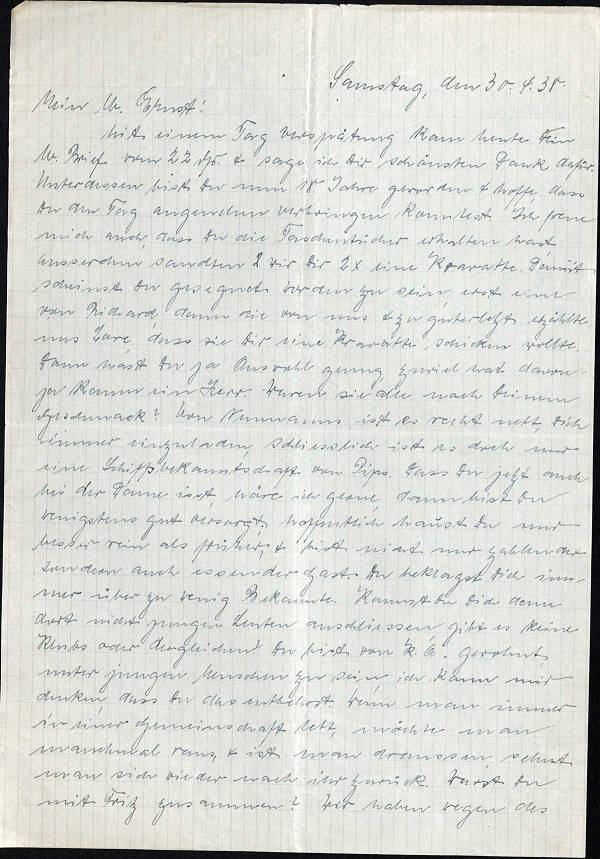 Samstag, den 30.4.38.
Mein lb. Ernst!
Mit einem Tag Verspätung kam heute Dein
lb. Brief vom 22. ds. & sage ich Dir schönsten Dank dafür.
Unterdessen bist Du nun 18 Jahre geworden & hoffe, dass
Du den Tag angenehm verbringen konntest. Ich freue
mich auch, dass Du die Taschentücher erhalten hast,
ausserdem sandten wir Dir 2x eine Krawatte. Damit
scheinst Du gesegnet worden zu sein, erst eine
von Richard, dann die von uns & zu guterletzt erzählte
uns Lore, dass sie Dir eine Krawatte schicken wollte.
Dann hast Du ja Auswahl genug, zuviel hat davon
ja kaum ein Herr. Waren sie alle nach Deinem
Geschmack? Von Neumanns ist es recht nett, Dich
immer einzuladen, schliesslich ist es doch nur
eine Schiffsbekanntschaft von Pips. Dass Du jetzt auch
bei der Dame isst, wäre ich gerne, dann bist Du
wenigstens gut versorgt, hoffentlich haust Du nur
besser rein als früher, & bist nicht nur zahlender
sondern auch essender Gast. Du beklagst Dich im-
mer über zu wenig Bekannte. Kannst Du Dich denn
dort nicht jungen Leuten anschliessen, gibt es keine
Klubs oder dergleichen? Du bist von K. A. gewohnt,
unter jungen Menschen zu sein, ich kann mir
denken, dass Du das entbehrst. Wenn man immer
in einer Gemeinschaft lebt, möchte man
manchmal raus, & ist man draussen, sehnt
man sich wieder nach ihr zurück. Warst Du
mit Fritz zusammen? Wir haben wegen des